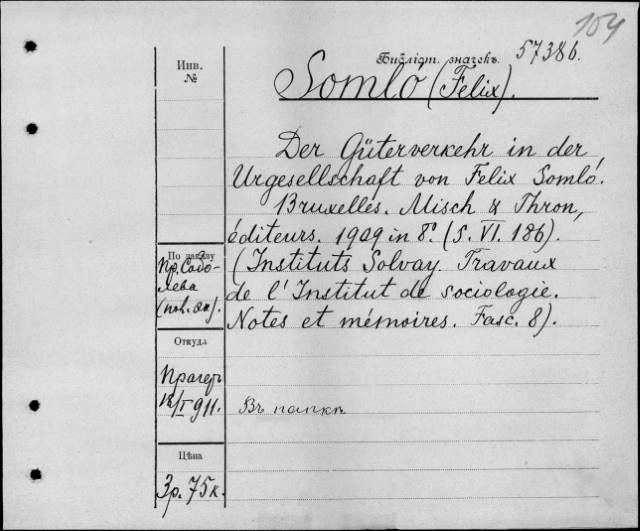 104
Библіот. значекъ. 57386.
Somló (Felix).
Инв.
№
Der Güterverkehr in der
Urgesellschaft von Felix Somló.
Bruxelles. Misch & Thron,
éditeurs. 1909 in 8°. (S. VI. 186).
(Instituts Solvay. Travaux
de l'Institut de sociologie.
Notes et mémoires. Fasc. 8).
По заказу
Пр. Собо-
лева
Откуда
Прагеръ
18/I 911.
Въ папкѣ
Цѣна
3 р. 75 к.